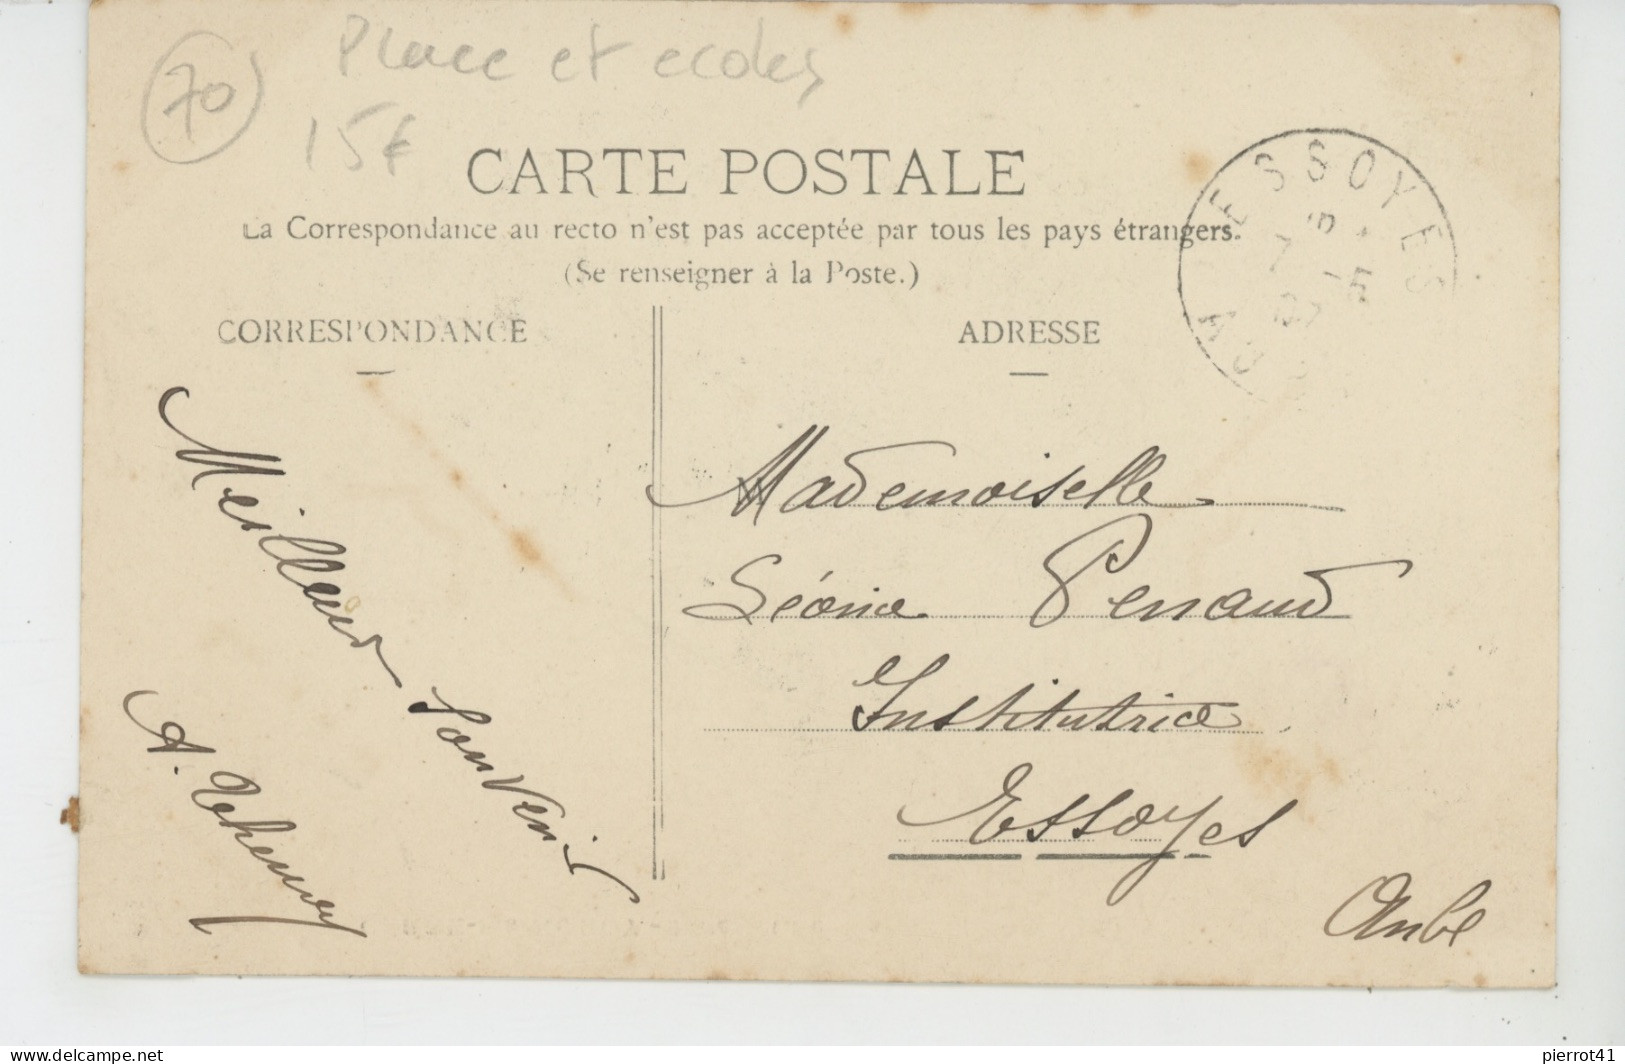 70
Place et ecoles
15€
CARTE POSTALE
La Correspondance au recto n'est pas acceptée par tous les pays étrangers.
(Se renseigner à la Poste.)
CORRESPONDANCE
ADRESSE
ESSOYES
AU
Meilleur
Souvenir
A.
Mademoiselle
Léonie
Institutrice
Essoyes
Aube
delcampe.net
pierrot41